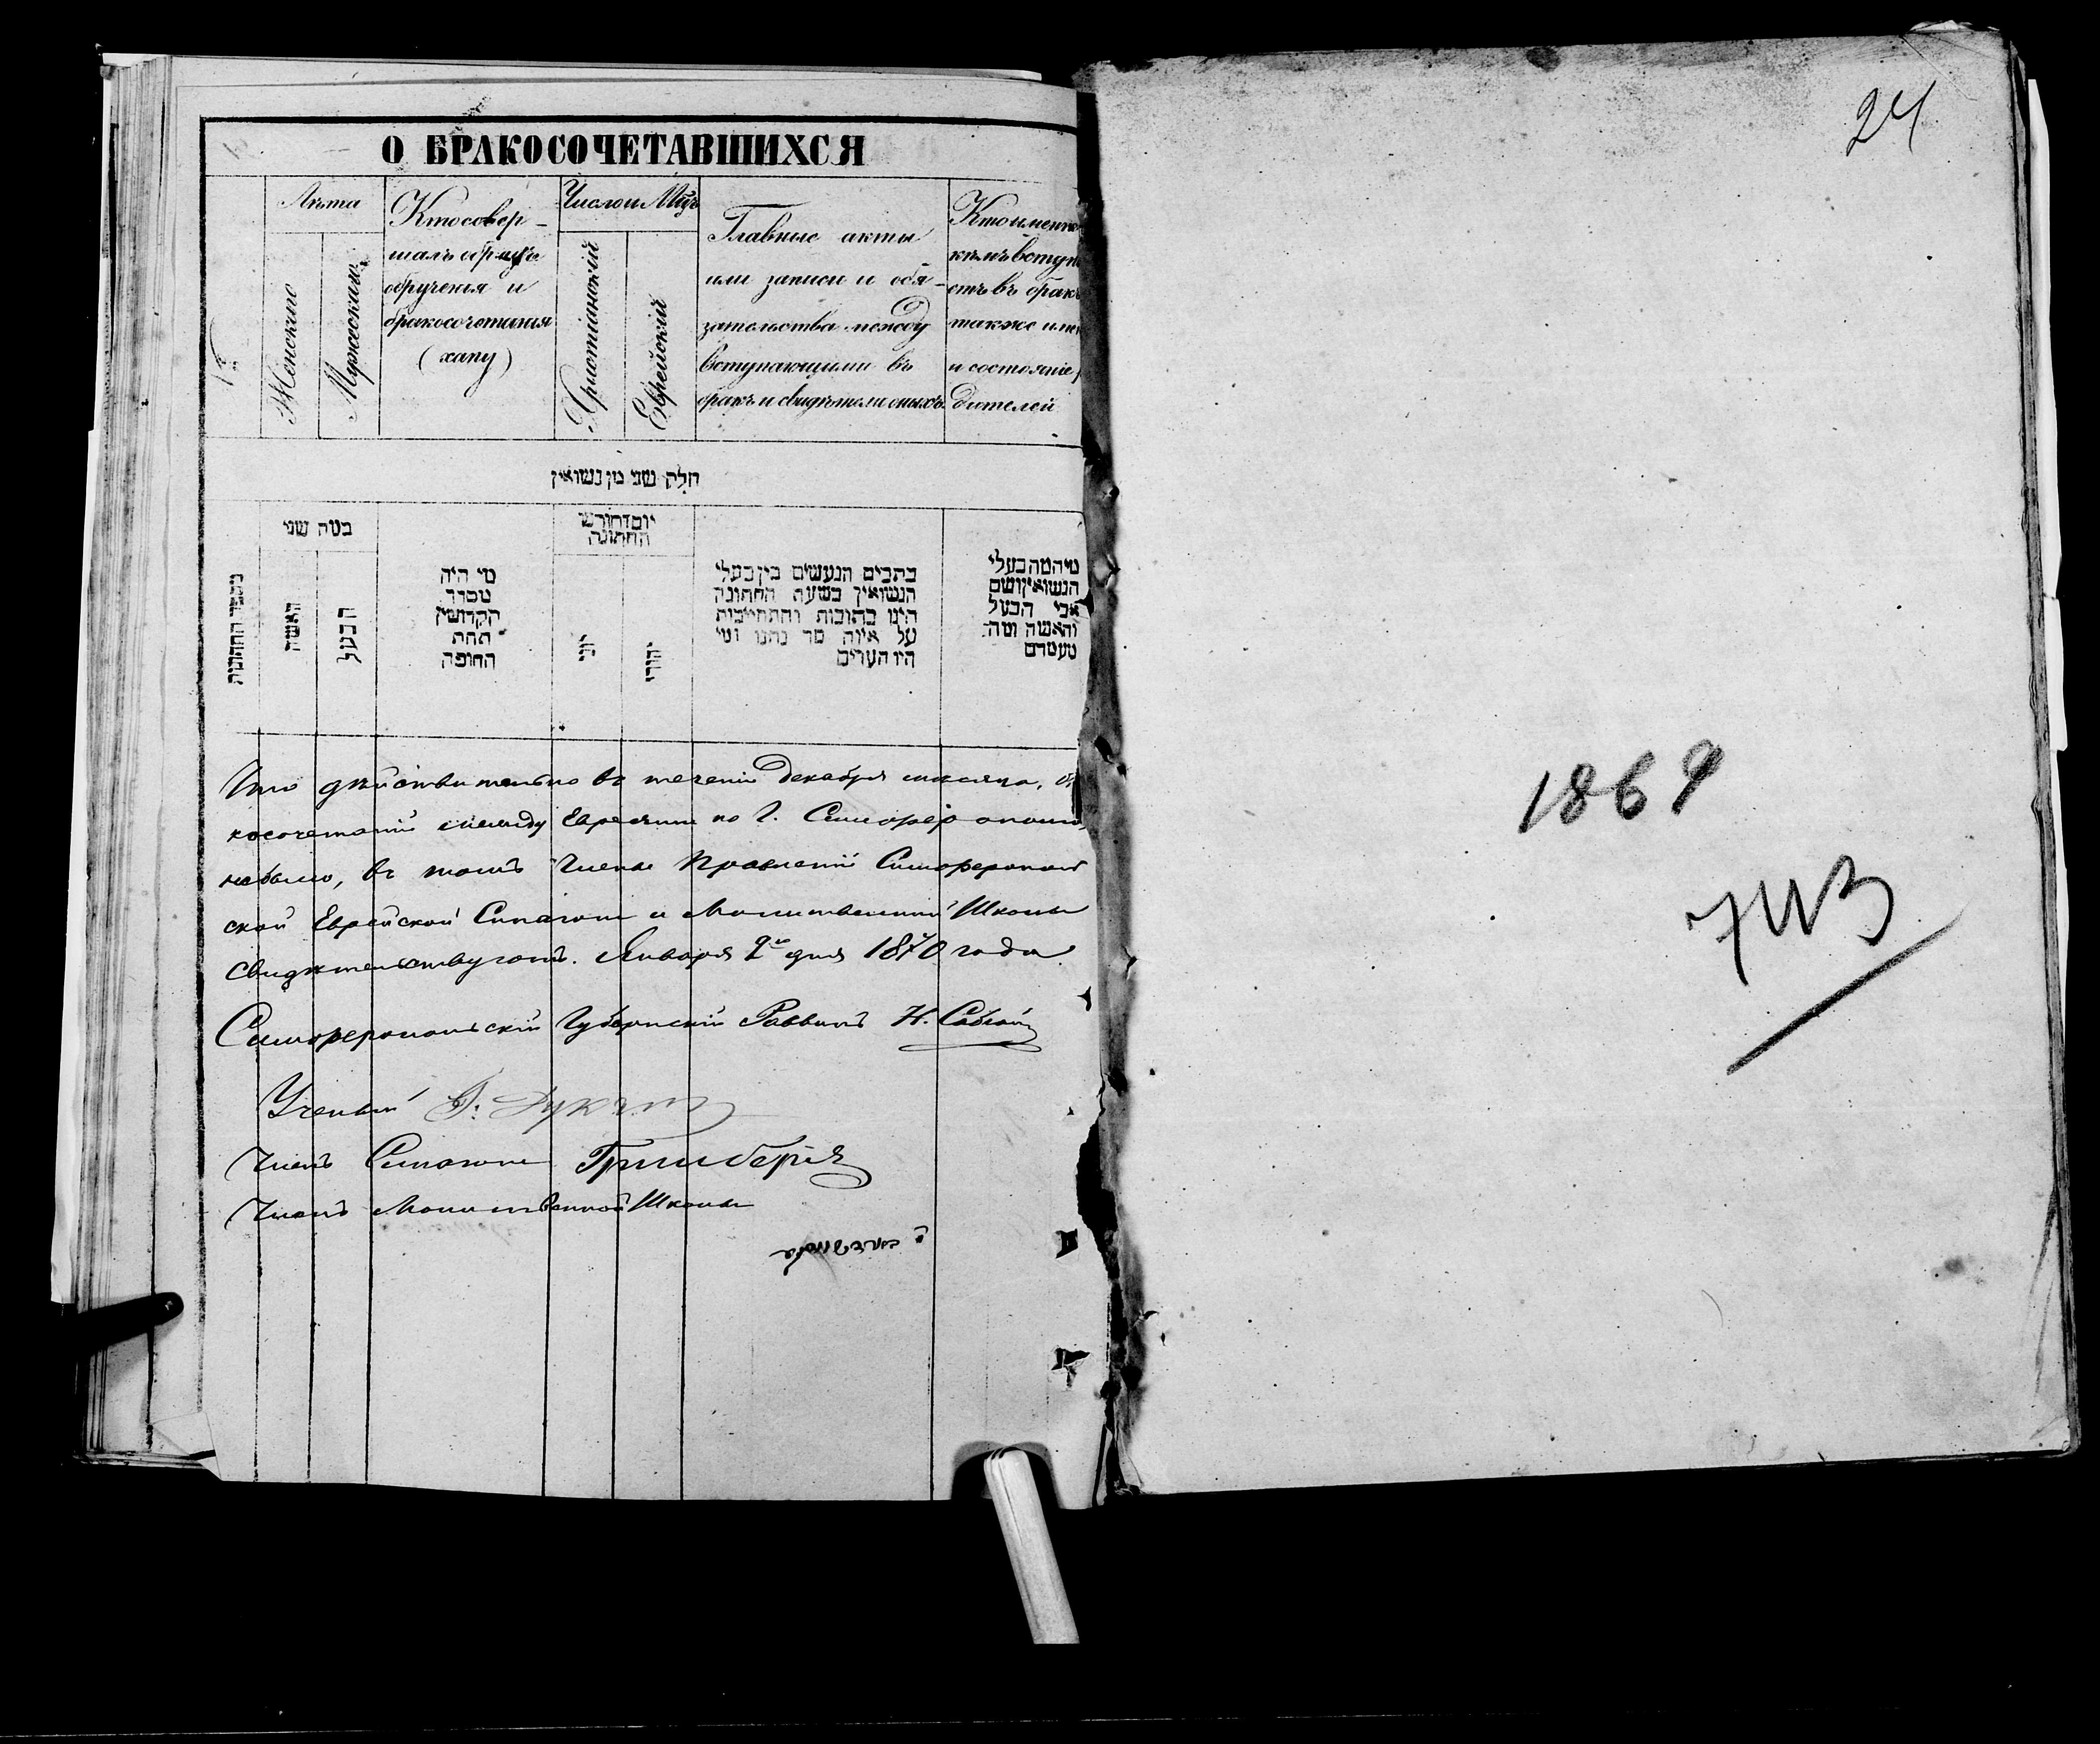 О БРАКОСОЧЕТАВШИХСЯ
№
Лѣта
Женскаго
Мужескаго
Кто совер-
шалъ обряды
обрученія и
бракосочетанія
(хапу)
Число и Мѣц
Христіанскій
Еврейскій
Главные акты
или записи и обя-
зательства между
вступающими въ
бракъ и свидѣтели оныхъ
Кто именно
кѣмъ вступа
етъ въ бракъ
также имен
и состояніе р
дителей
חלק שני מן נשואין
במה שני
האשה
הבעל
מי היה
מסדר
הקדושין
תחת
החופה
יום וחודש
החתונה
יהודי
כתבים הנעשים בין בעלי
הנשואין בשעת החתונה
היינו כתובות והתחייבות
על איזה סך נתנו ומי
היו העדים
מי המה בעלי
הנשואין ושם
אבי הבעל
והאשה ומה
מעמדם
Что дѣйствительно въ теченіи Декабря мѣсяца,
косочетаній между Евреями по Г. Симфероп
небыло, въ томъ Члены Правленій Симферополь
ской Еврейской Синагоги и Молитвенной Школы
свидѣтельствуютъ. Января 2го дня 1870 года
Симферопольскій Губернскій Раввинъ Н.
Ученый
Членъ Синагоги Гринбергъ
Членъ Молитвенной Школы
24
1869